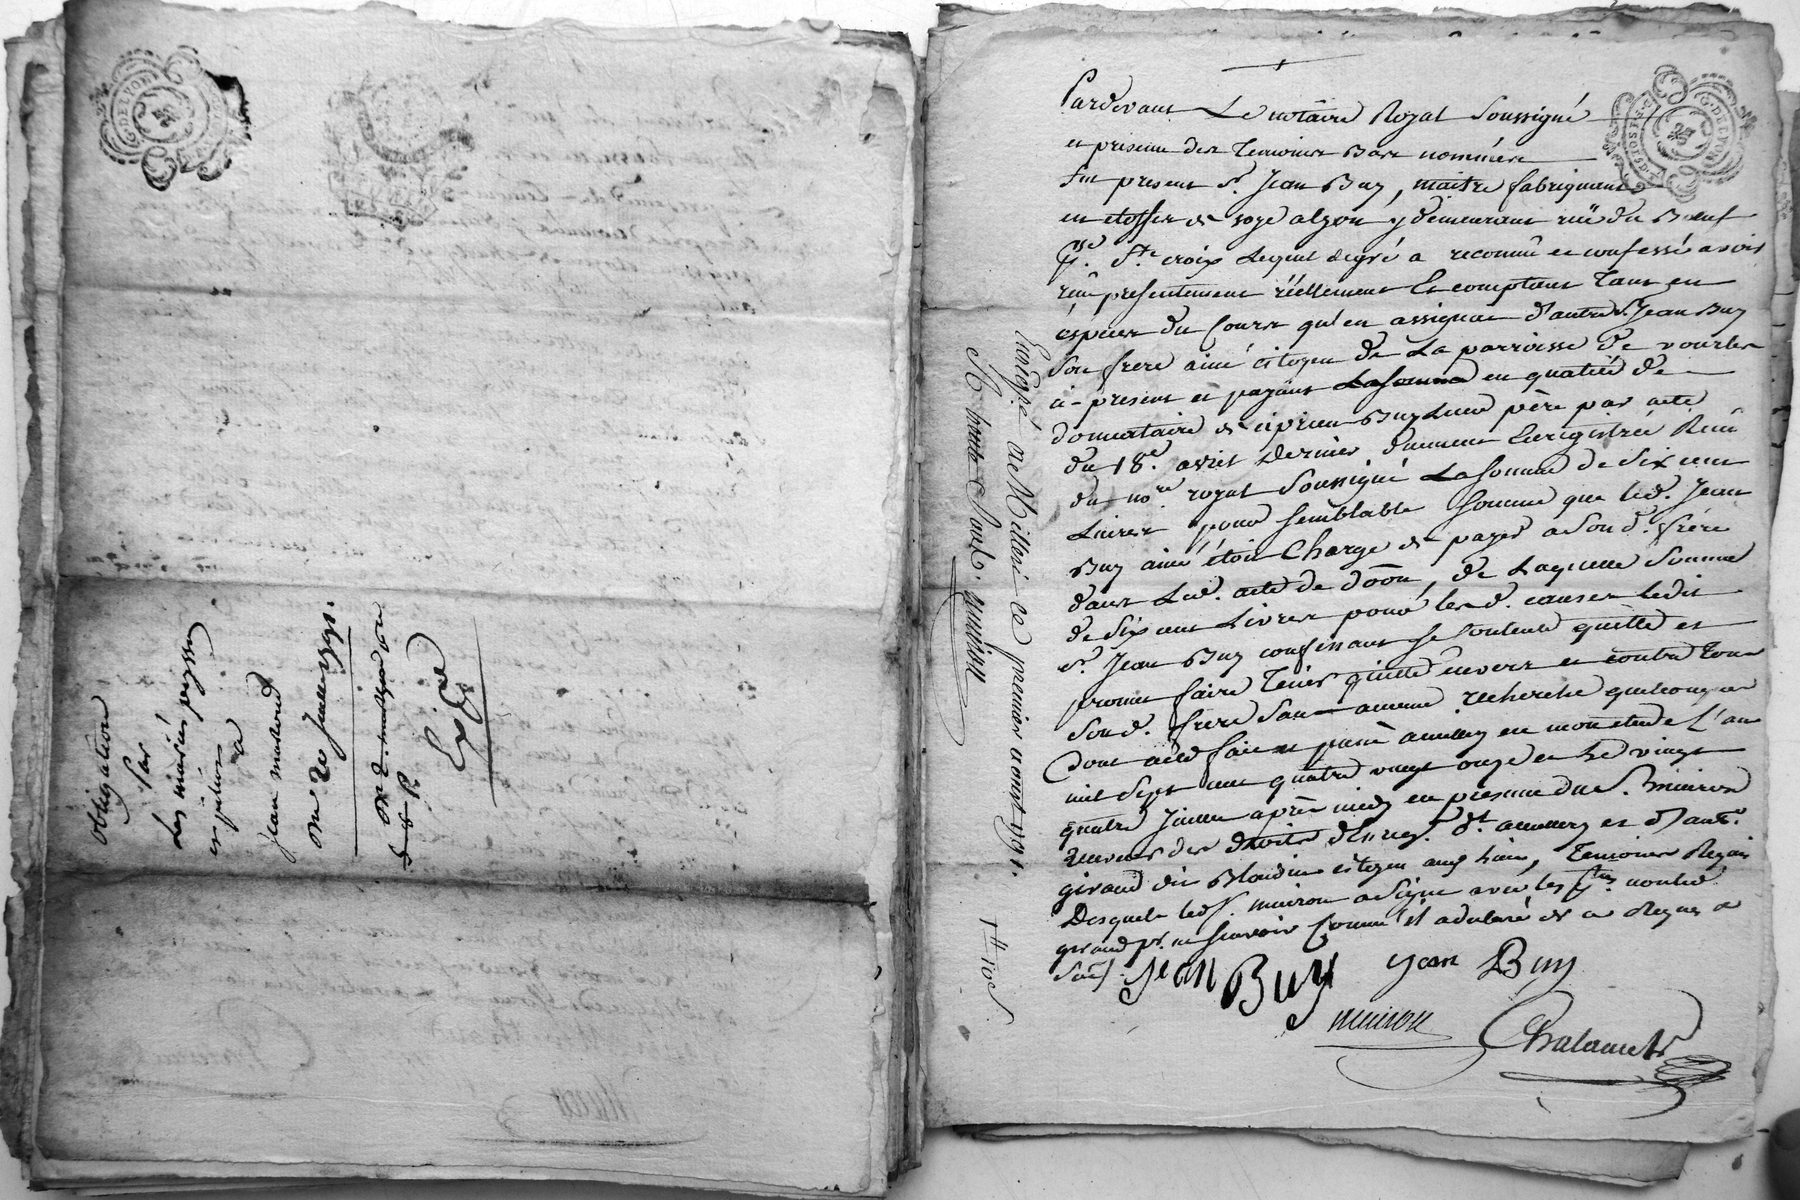 G. DE LYON
obligation
Par
Les mariés
et
a
Jean
du 20 Juillet 1791.
Expé
Pardevant Le notaire Royal Soussigné
et presence des Temoins Bas nommés
fut present Sr. Jean Buy, maitre fabriquant
en etoffes de soye a lyon, y demeurant rüe du Boeuf
Psse. Ste. croix Lequel de gré a reconnu et confessé avoir
reçu presentement réellement Et comptant Tant en
espèces du Cours qu'en assignat d'autre Sr. Jean Buy
Son frere ainé citoyen de La parroisse de vourles
ci-present et payant La somme en qualité de
donnataire de ciprien Buy Leur père par acte
du 18e. avril dernier duement Enregistrée Reçu
du nore royal Soussigné La somme de Six cent
Livres pour semblable somme que led. Jean
Buy ainé étoit Chargé de payer a Son d. frère
dans Led. acte de doôn, de Laquelle Somme
de Six cent Livres pour les d. causes ledit
Sr. Jean Buy confessant se contente quitte et
promet faire Tenir quitte envers et contre Tous
Son d. frere Sans aucune recherche quelconque
Dont acte fait et passé a millery en mon etude L'an
mil Sept cent quatre vingt onze et le vingt
quatre Juillet après midy en presence du S. miniron
receveur des droits d'Enregt. dt. a millery et d'ant.
giraud dit Blondin citoyen aud. lieu, Temoins Requis
Desquels led. S. miniron a Signé avec les Pties non led.
giraud pr. ne scavoir Comme il a declaré de ce Requis a
Sont.
Jean Buy
jean Buy
miniron
Chalamet
Enregé. a Millery Le premier aoust 1791.
R trente Sous. miniron
1tt 10s